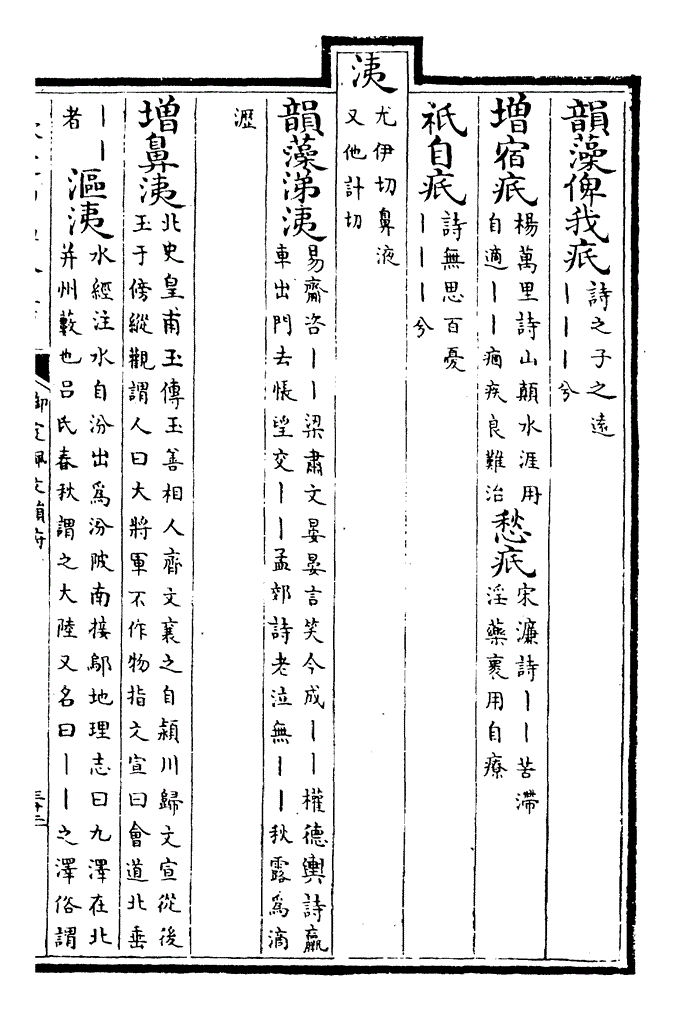 韻藻俾我疧
詩之子之遠
丨丨丨兮
增宿疧
楊萬里詩山顛水涯用
自適丨丨痼疾良難治
愁疧
宋濂詩丨丨苦滯
淫藥裹用自療
祇自疧
詩無思百憂
丨丨丨兮
洟
尤伊切鼻液
又他計切
韻藻涕洟
易齎咨丨丨梁肅文晏晏言笑今成丨丨權德輿詩羸
車出門去悵望交丨丨孟郊詩老泣無丨丨秋露爲滴
瀝
增鼻洟
北史皇甫玉傳玉善相人齊文襄之自潁川歸文宣從後
玉于傍縱觀謂人曰大將軍不作物指文宣曰會道北垂
丨丨
者
漚洟
水經注水自汾出爲汾陂南接鄔地理志曰九澤在北
并州藪也吕氏春秋謂之大陸又名曰丨丨之澤俗謂
御定佩文韻府